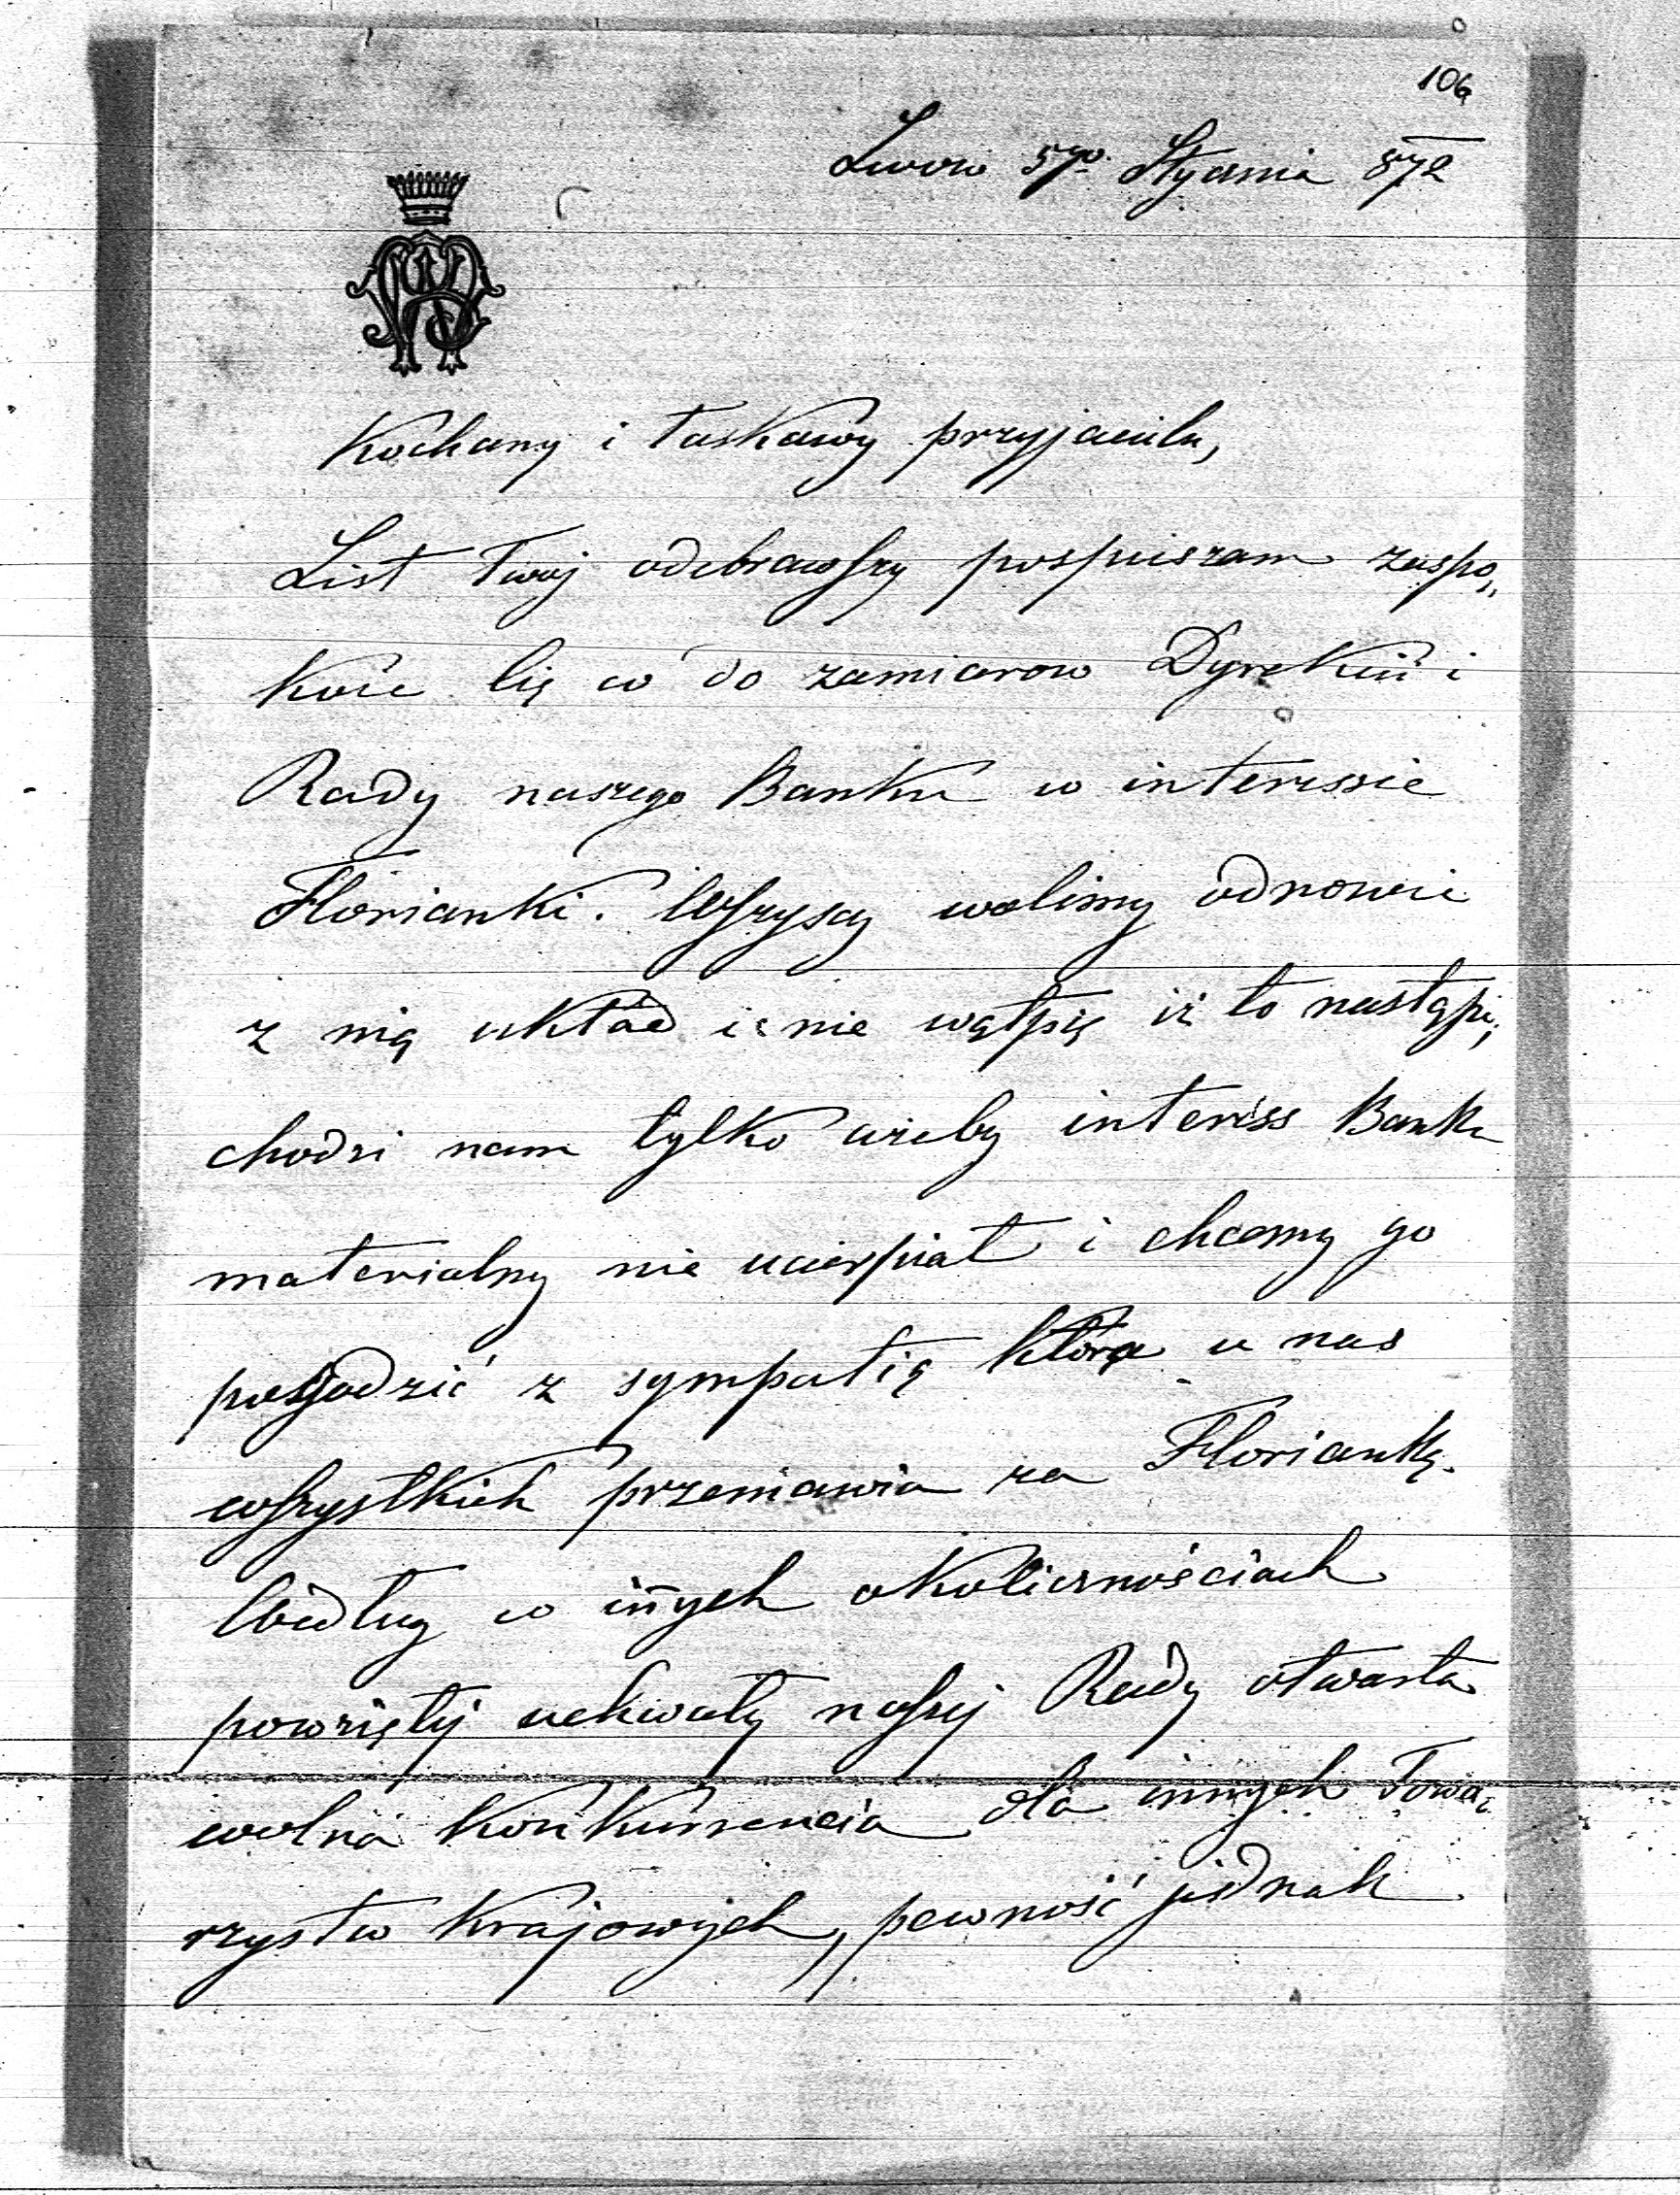 106
Lwow 5go Stycznia 872
Kochany i łaskawy przyjacielu,
List Twoj odebrawszy pospieszam zaspo„
koić Cię co do zamiarow Dyrekcii i
Rady naszego Banku w interessie
Florianki. Wszyscy wolimy odnowić
z nią układ i nie wątpię iż to nastąpi;
chodzi nam tylko ażeby interess Banku
materialny nie ucierpiał i chcemy go
pogodzić z sympatią która u nas
wszystkich przemawia za Florianką.
Według w innych okolicznościach
powziętej uchwały naszej Rady otwarta
wolna konkurencia dla innych Towa„
rzystw krajowych, pewność jednak